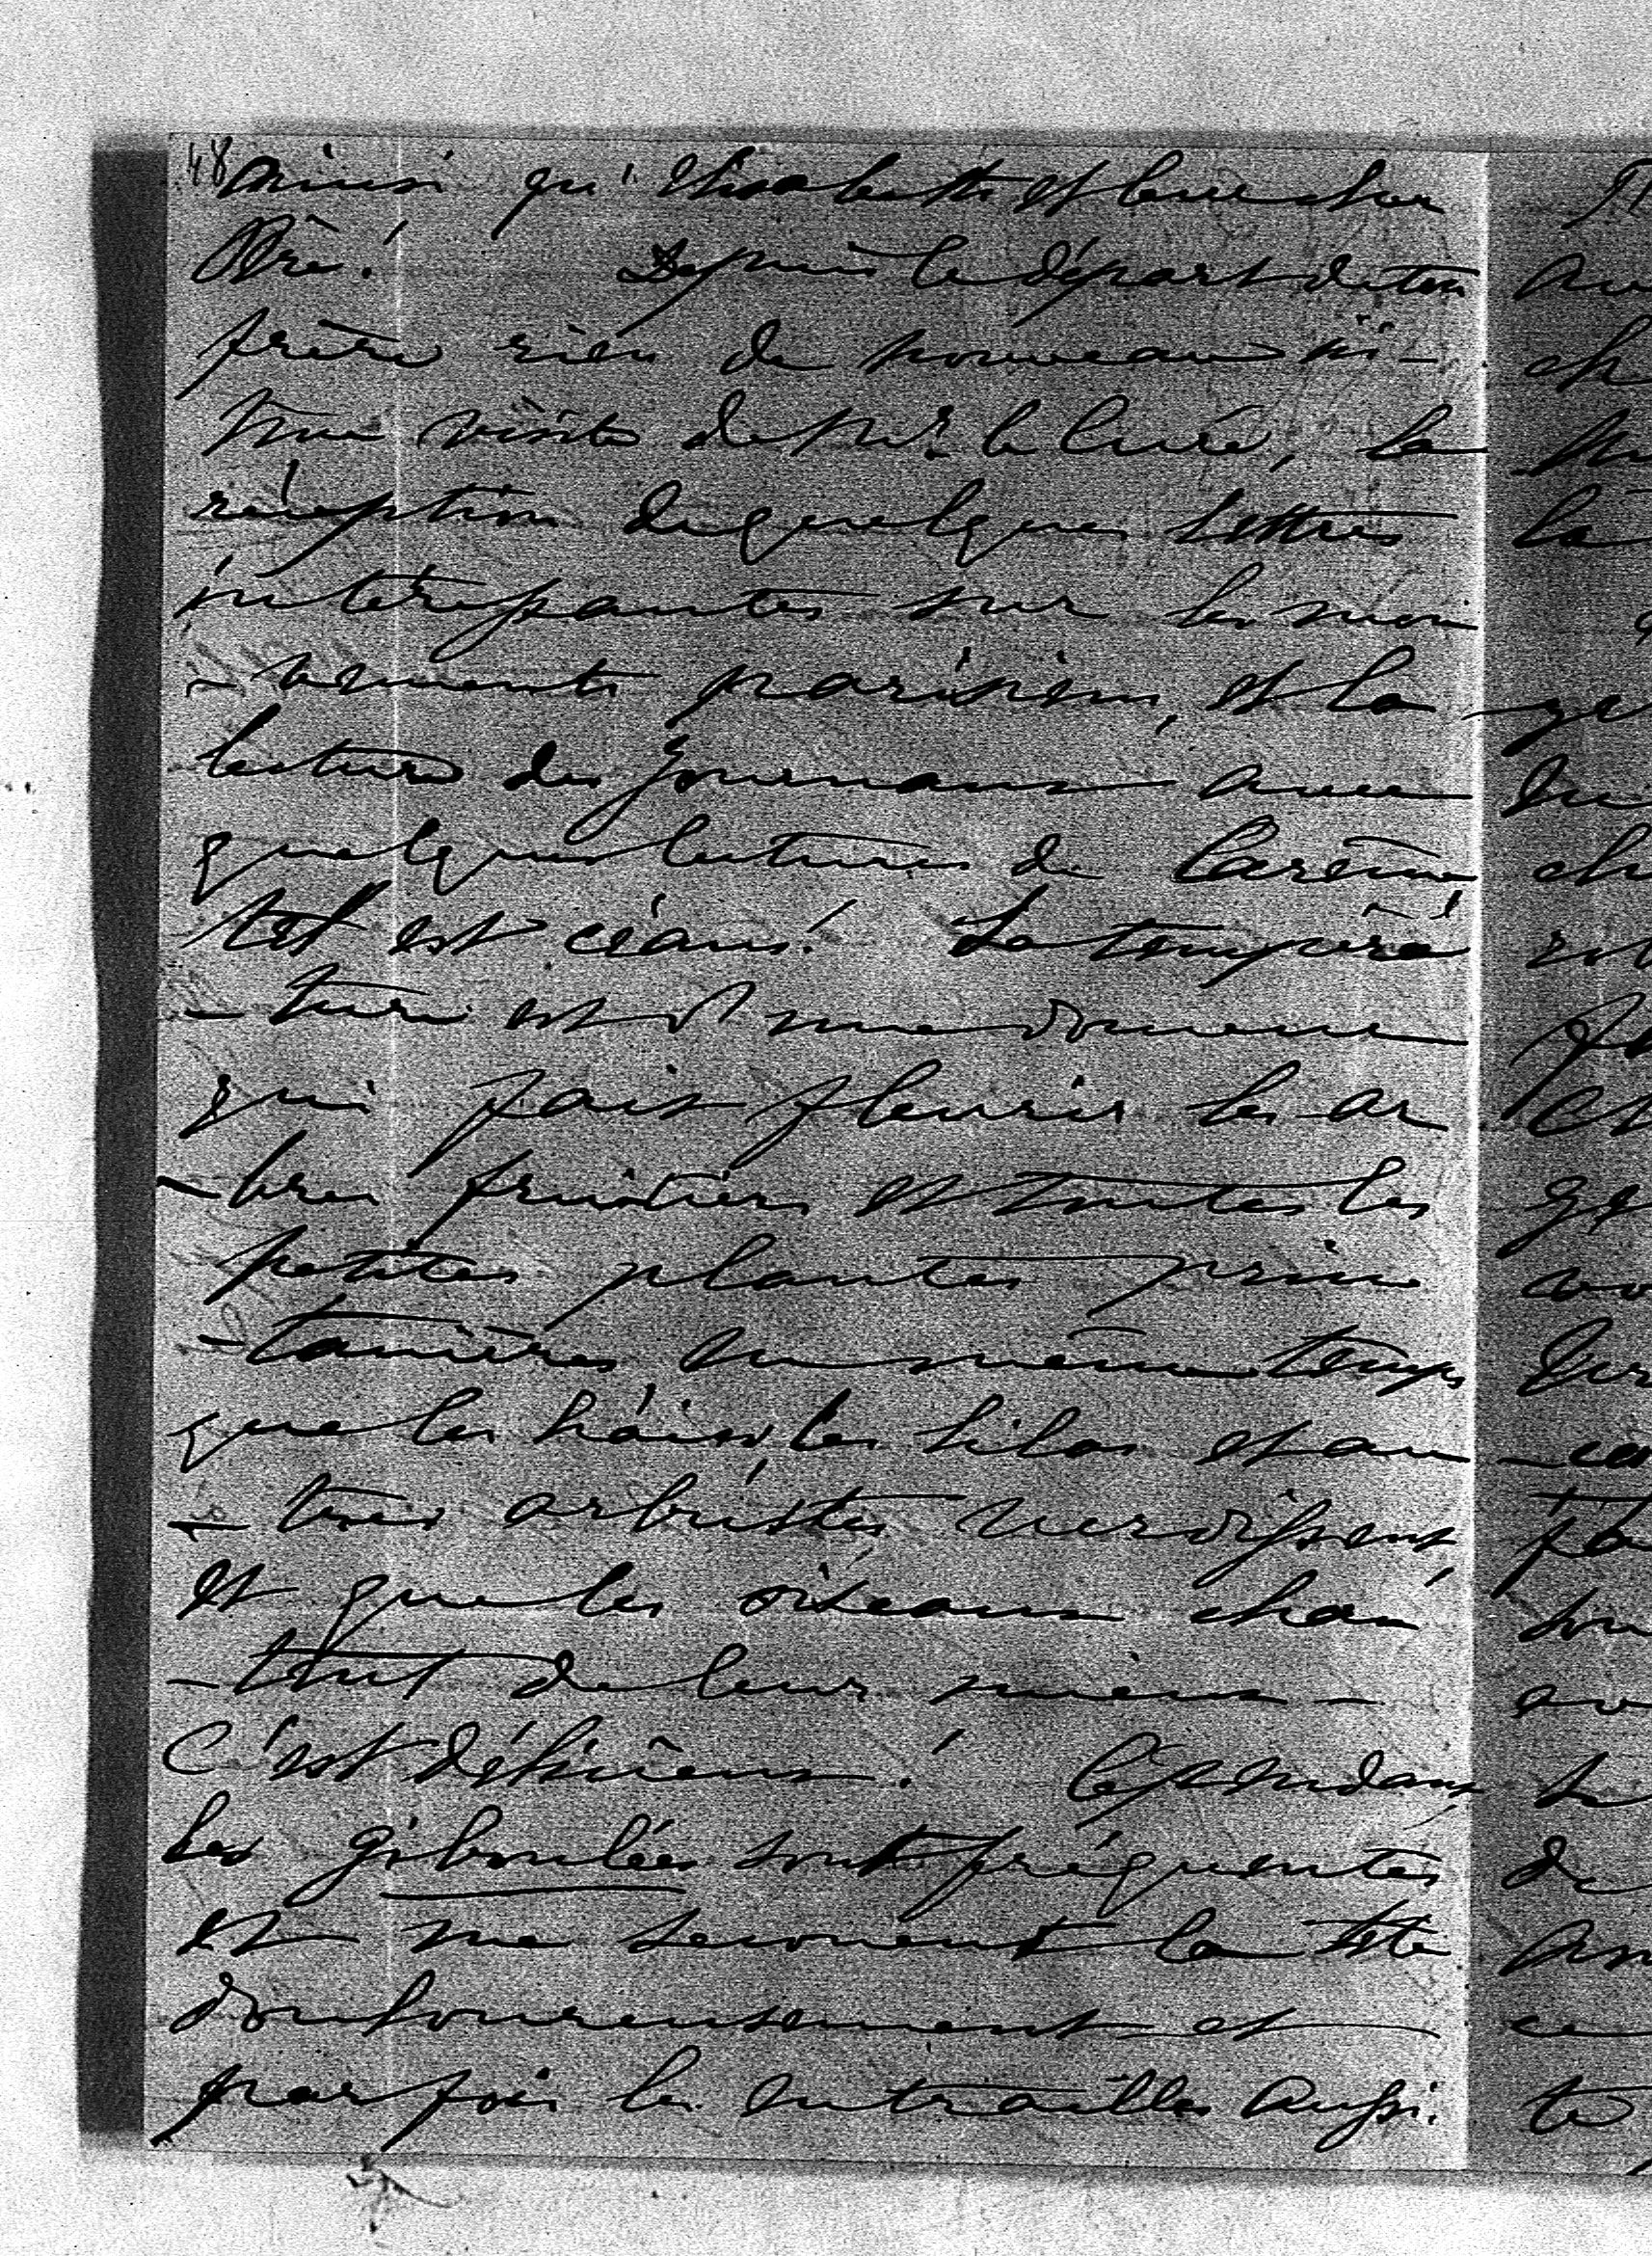 48 Ainsi qu'Elisabeth et leur cher
Père! Depuis le départ de ton
frère rien de nouveau ici -
Une visite de Mr. le Curé, la
réception de quelques lettres
intéressantes sur les mou
- vements parisiens, et la
lecture des journaux avec
quelques lectures de Carême
tel est céans! La tempéra
- ture est d'une douceur
qui fais fleurir les ar
- bres fruitiers et toutes les
petites plantes prin
- tanières en même temps
que les haies les lilas et au
- tres arbustes verdissent
et que les oiseaux chan
- tent de leur mieux -
C'est délicieux! Cependant
les giboulées sont fréquentes
et me secouent la tête
douloureusement et
parfois les entrailles aussi.